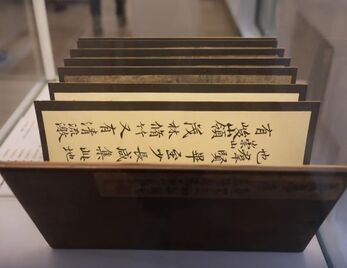 也群賢畢至少長咸集此地
有崇山峻領茂林脩竹又有清流激